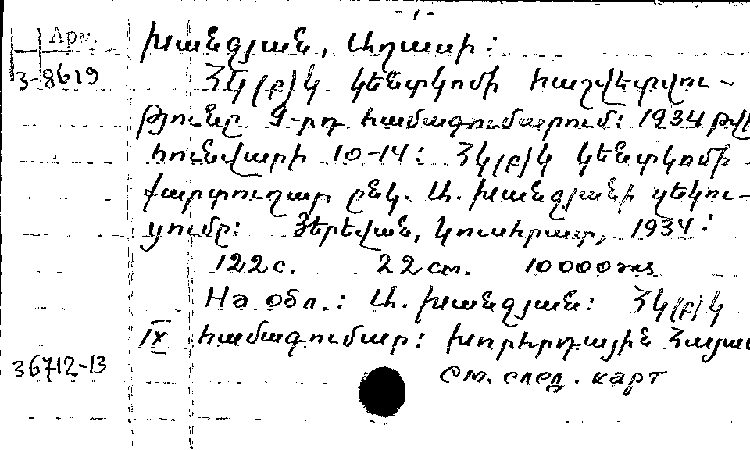 Арм.
Խանջյան, Աղասի:
3-8619
ՀԿ(բ)Կ Կենտկոմի հաշվետվու-
թյունը 9-րդ համագումարում: 1934 թվ
հունվարի 10-14: ՀԿ(բ)Կ Կենտկոմի
քարտուղար ընկ. Ա. Խանջյանի զեկու-
ցումը: Յերեվան, Կուսհրատ, 1934:
122 с. 22 см. 10000 экз
На обл.: Ա. Խանջյան: ՀԿ(բ)Կ
IX համագումար: Խորհրդային Հայաս
36712-13
См. след. карт